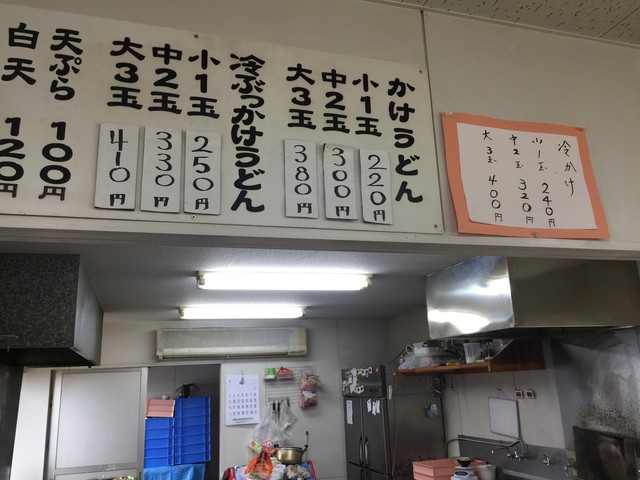 かけうどん
小1玉 220円
中2玉 300円
大3玉 380円
冷ぶっかけうどん
小1玉 250円
中2玉 330円
大3玉 410円
天ぷら 100円
白天 120円
冷かけ
小1玉 240円
中2玉 320円
大3玉 400円